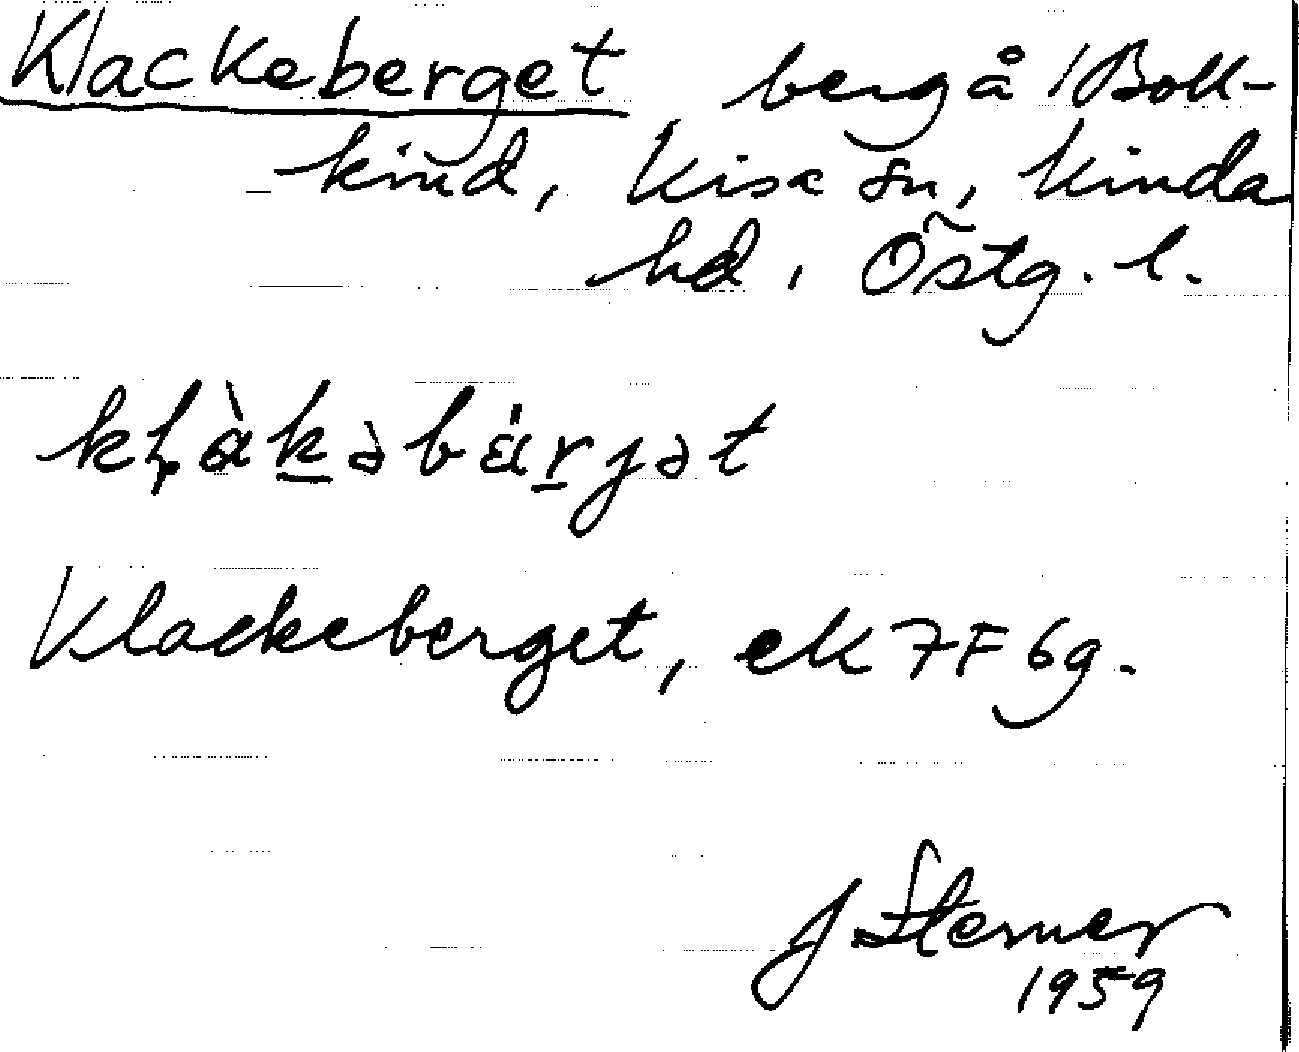 Klackeberget berg å 1 Boll-
kind, Kisa sn, Kinda
hd, Östg. l.
kḷàk̠əbä́r̠jət
Klackeberget, ek 7F 6g.
J Sterner
1959